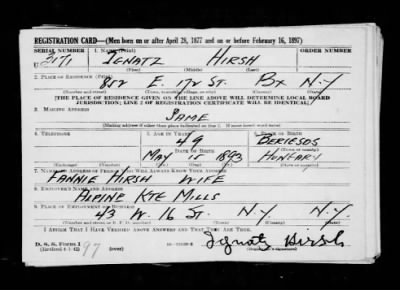 REGISTRATION CARD—(Men born on or after April 28, 1877 and on or before February 16, 1897)
SERIAL NUMBER 1. NAME (Print) ORDER NUMBER
U 3171 IGNATZ HIRSH
(First) (Middle) (Last)
2. PLACE OF RESIDENCE (Print)
852 E. 172 ST. BX N.Y
[THE PLACE OF RESIDENCE GIVEN ON THE LINE ABOVE WILL DETERMINE LOCAL BOARD
JURISDICTION; LINE 2 OF REGISTRATION CERTIFICATE WILL BE IDENTICAL]
3. MAILING ADDRESS
SAME
[Mailing address if other than place indicated on line 2. If same insert word same]
4. TELEPHONE 5. AGE IN YEARS 6. PLACE OF BIRTH
49
DATE OF BIRTH (Town or county)
MAY 15 1893 HUNGARY
(Exchange) (Number) (Mo.) (Day) (Yr.) (State or country)
7. NAME AND ADDRESS OF PERSON WHO WILL ALWAYS KNOW YOUR ADDRESS
FANNIE HIRSH WIFE
8. EMPLOYER'S NAME AND ADDRESS
ALPINE KTG MILLS
9. PLACE OF EMPLOYMENT OR BUSINESS
43 W. 16 ST. N.Y N.Y.
I AFFIRM THAT I HAVE VERIFIED ABOVE ANSWERS AND THAT THEY ARE TRUE.
D. S. S. Form 1
(Revised 4-1-42) (over)
97
Ignatz Hirsh